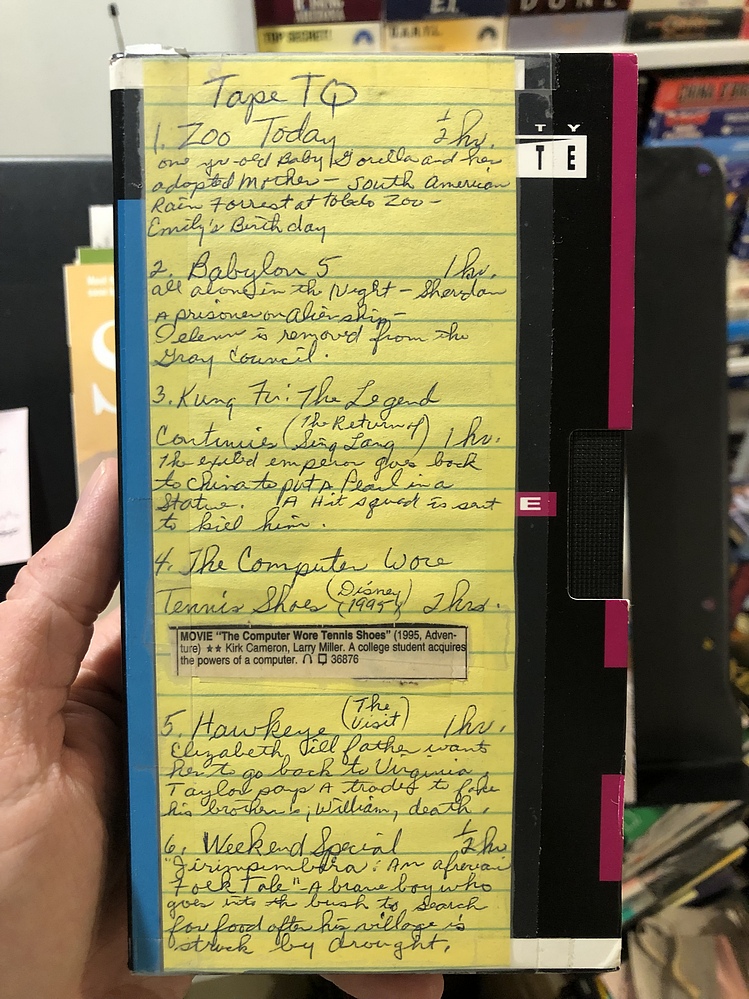 TOP SECRET!
E.T.
DUNE
Tape TQ
1. Zoo Today 1/2 hr.
one yr-old Baby Gorilla and her
adopted Mother - South American
Rain Forrest at Toledo Zoo -
Emily's Birthday
2. Babylon 5 1 hr.
all alone in the Night - Sheridan
A prisoner on Alien ship -
Delenn is removed from the
Gray Council.
3. Kung Fu: The Legend
Continues (The Return of Sing Lang) 1 hr.
The exiled emperor goes back
to China to put A Pearl in a
Statue. A Hit squad is sent
to kill him.
4. The Computer Wore
Tennis Shoes (Disney (1995)) 2 hrs.
MOVIE "The Computer Wore Tennis Shoes" (1995, Adven-
ture) ★★ Kirk Cameron, Larry Miller. A college student acquires
the powers of a computer. 36876
5. Hawkeye (The Visit) 1 hr.
Elizabeth, ill father wants
her to go back to Virginia.
Taylor pays A trader to fake
his brother's, William, death.
6. Weekend Special 1/2 hr
"Jirimpimbira: An african
Folk Tale" - A brave boy who
goes into the bush to search
for food after his village is
struck by drought.
TY
TE
E